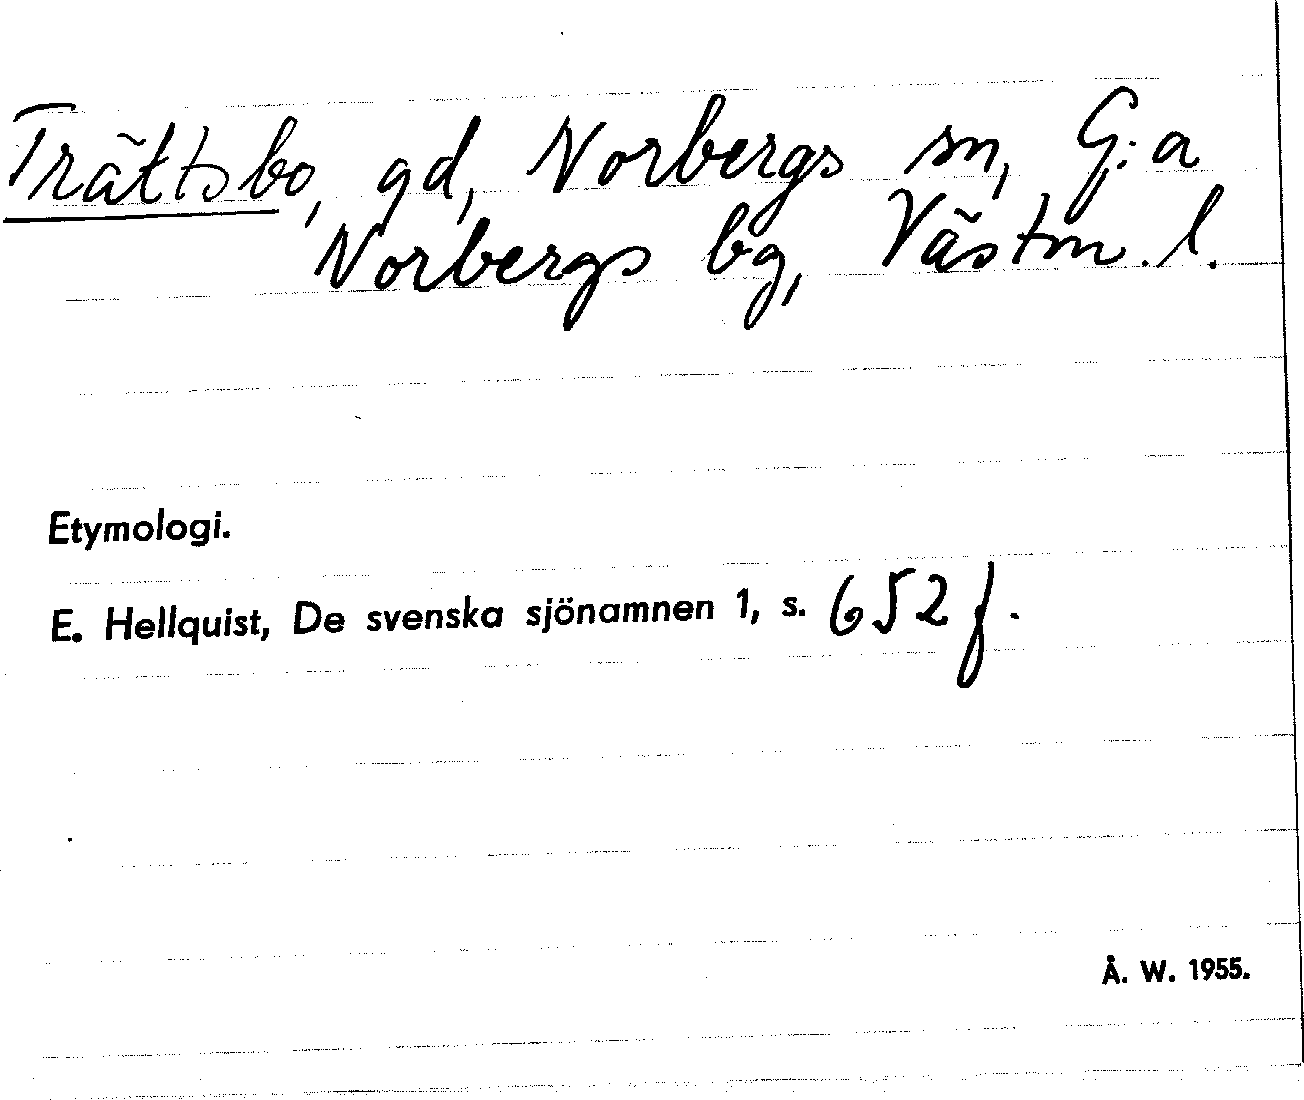 Trättsbo, gd, Norbergs sn, G:a
Norbergs bg, Västm. l.
Etymologi.
E. Hellquist, De svenska sjönamnen 1, s. 652 f.
Å. W. 1955.